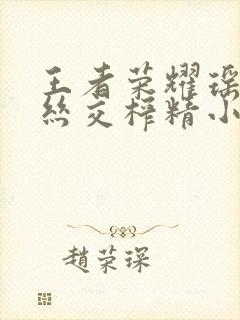 王者荣耀瑶
丝交榨精小
趙荣琛